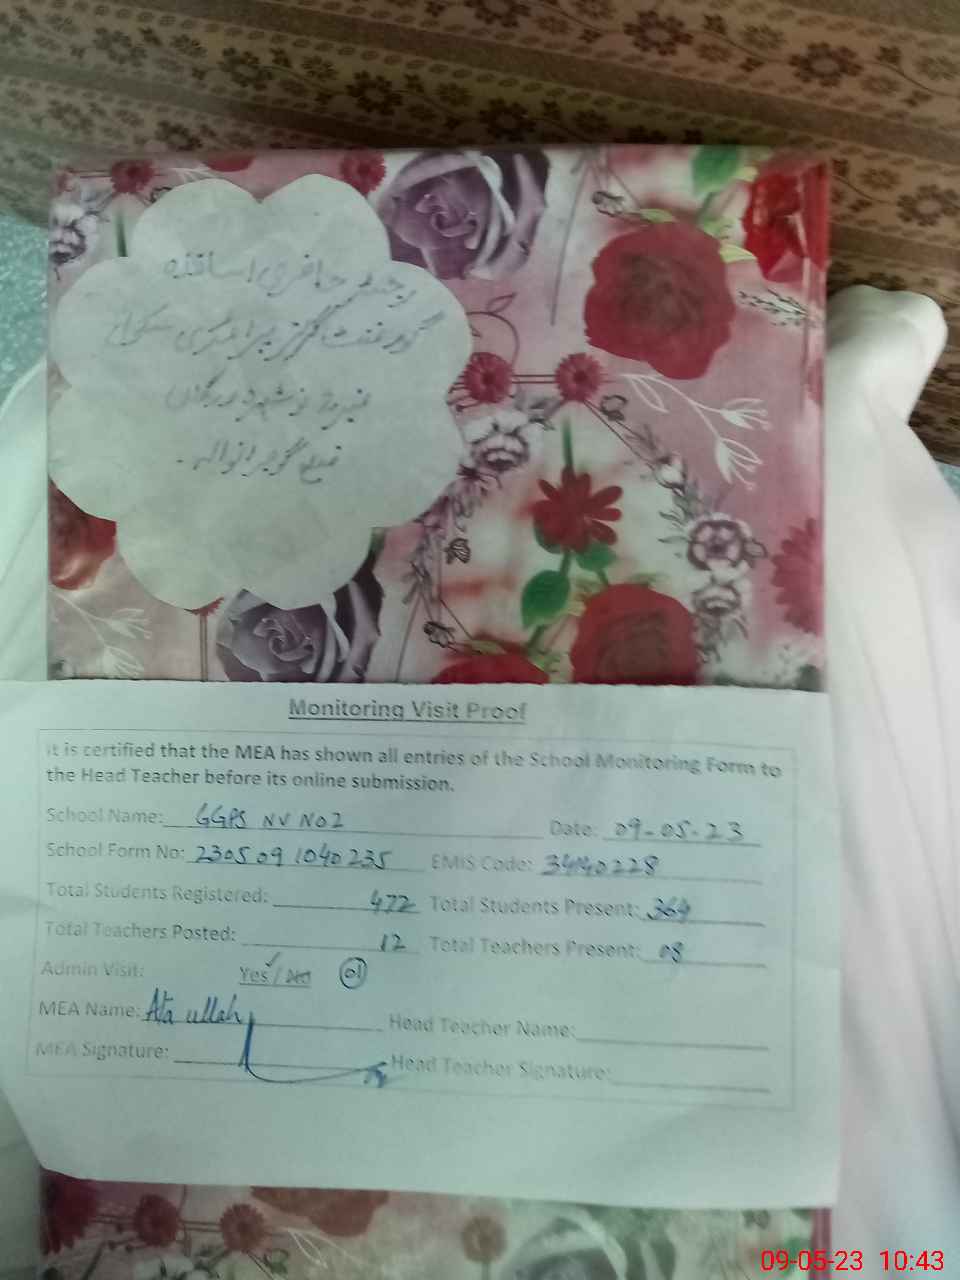 رجسٹر حاضری اساتذہ
گورنمنٹ گرلز پرائمری سکول
نوشہرہ ورکاں
ضلع گوجرانوالہ۔
Monitoring Visit Proof
It is certified that the MEA has shown all entries of the School Monitoring Form to
the Head Teacher before its online submission.
School Name: GGPS NV NO2 Date: 09-05-23
School Form No: 230509 1040235 EMIS Code: 34140228
Total Students Registered: 472 Total Students Present: 364
Total Teachers Posted: 12 Total Teachers Present: 08
Admin Visit: Yes / No 01
MEA Name: Ata ullah Head Teacher Name:
MEA Signature: Head Teacher Signature:
09-05-23 10:43